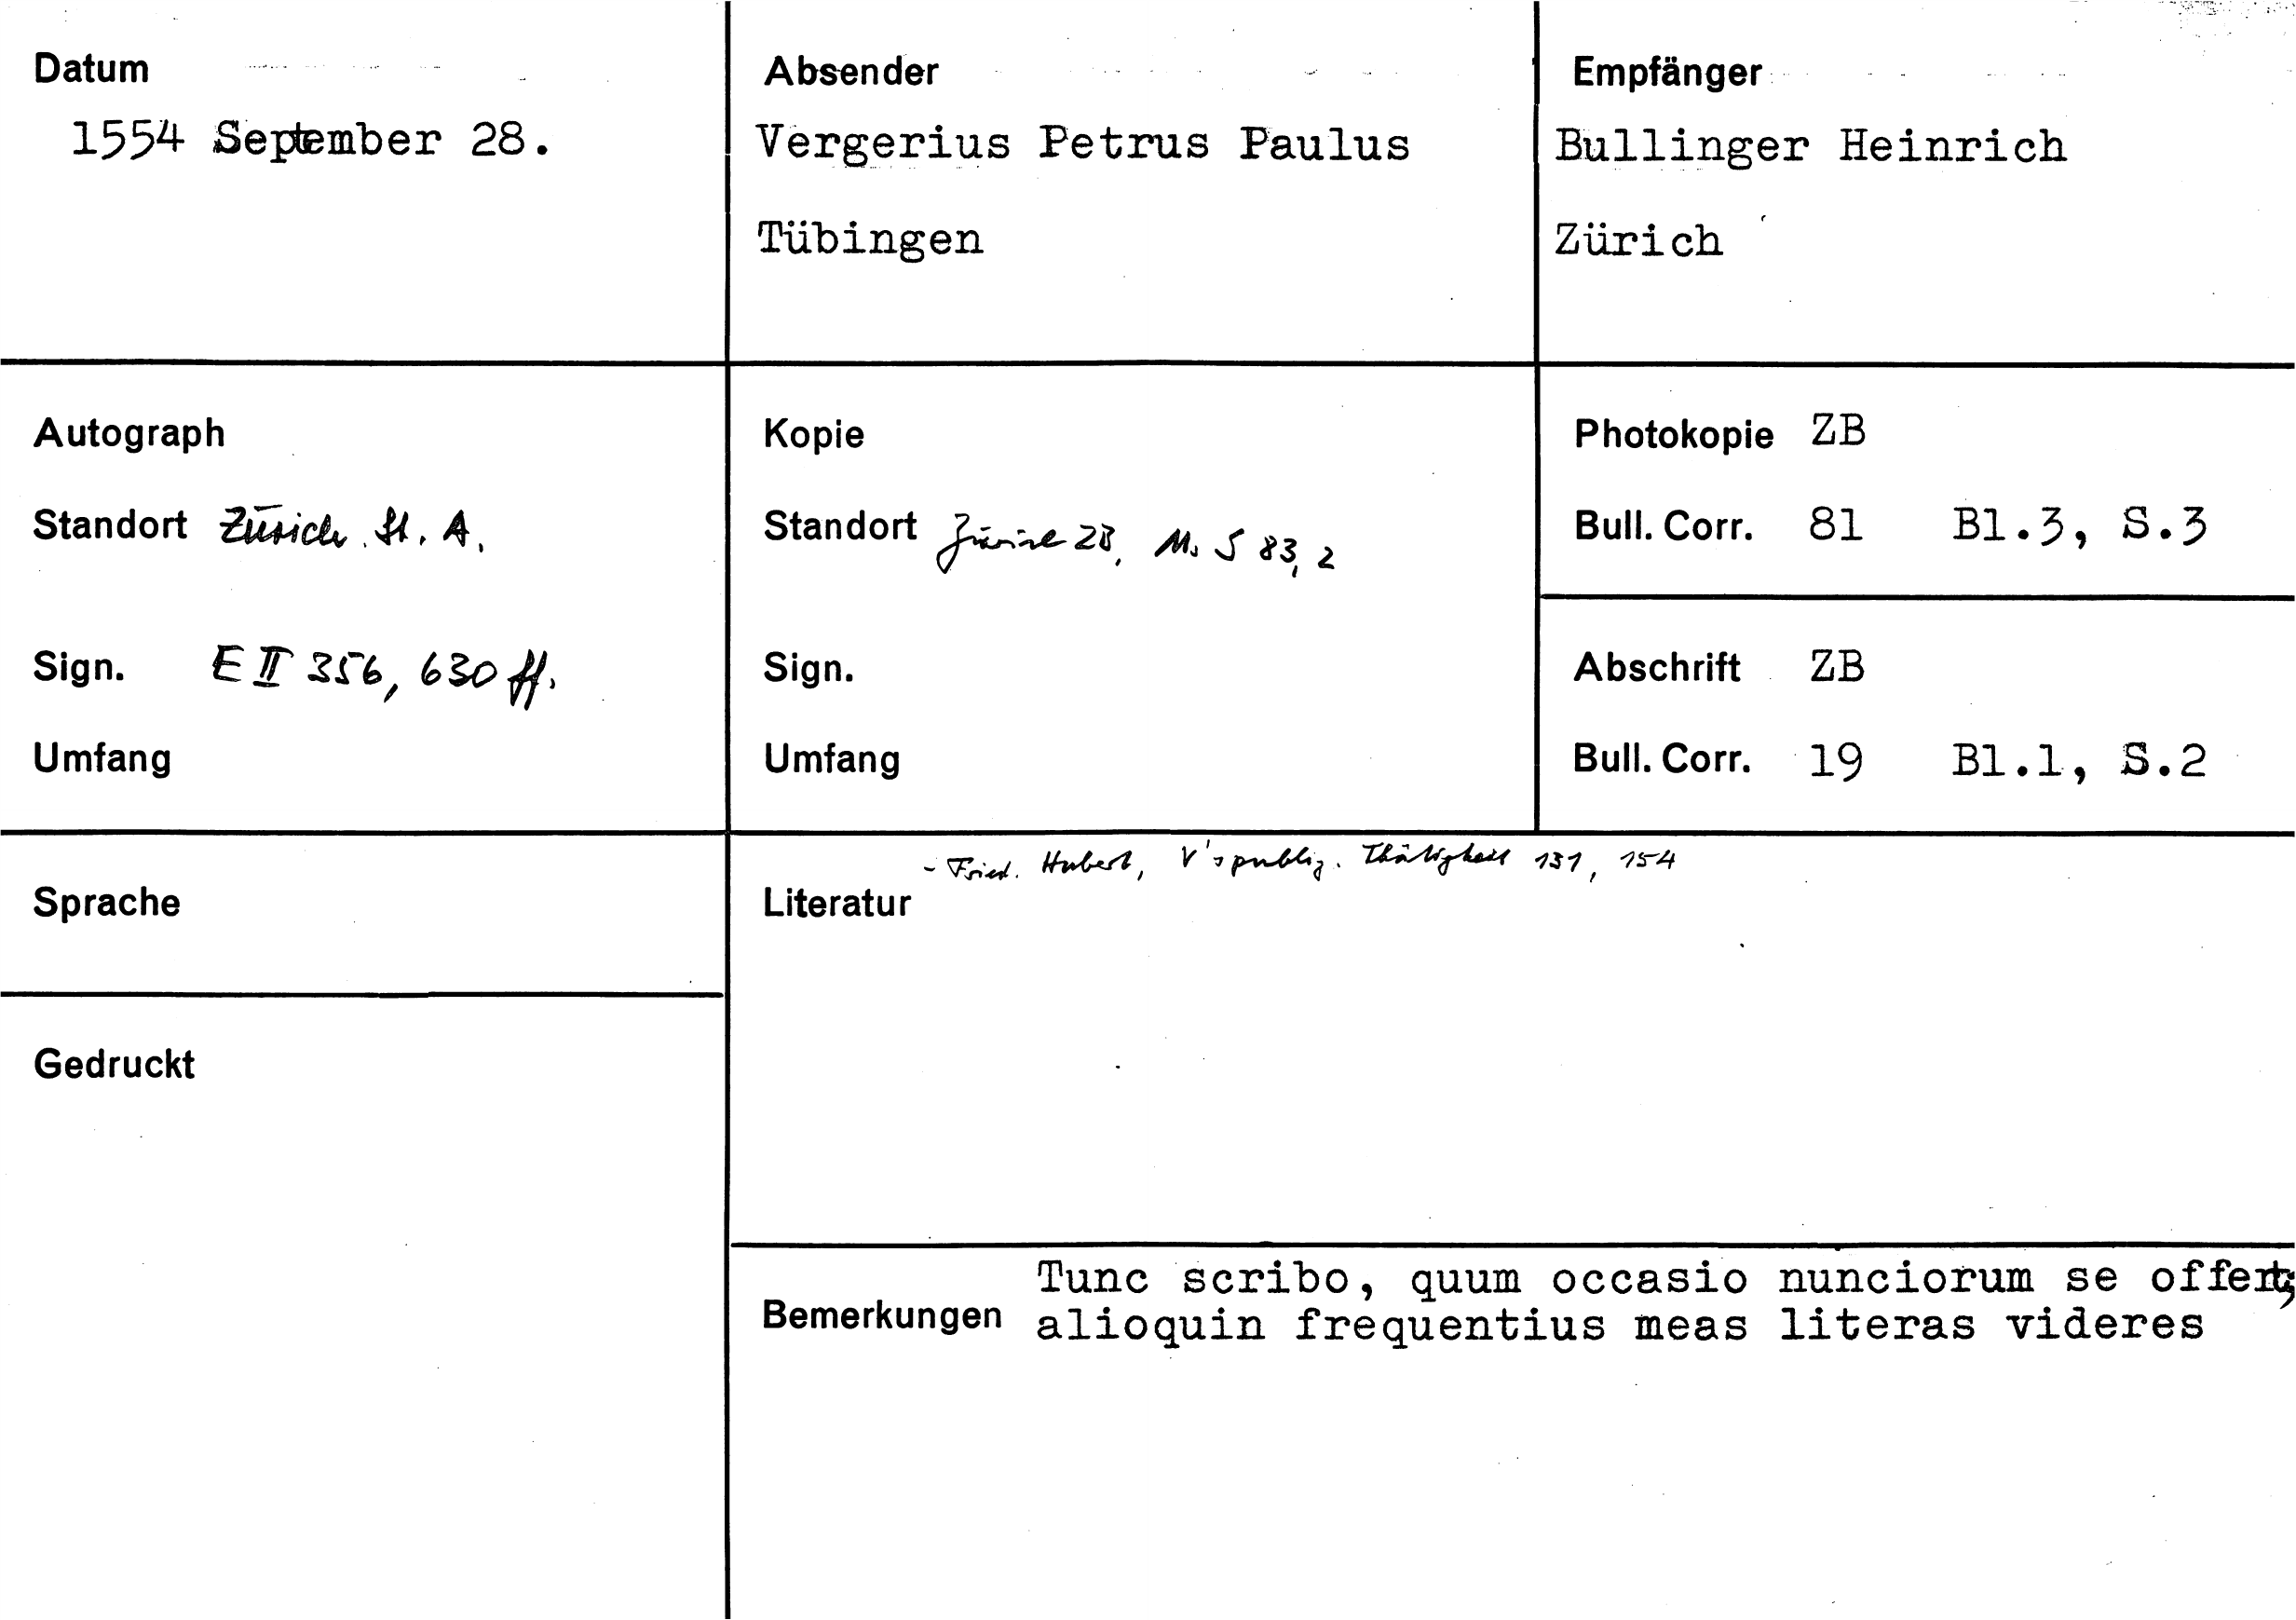 Datum
1554 September 28.
Absender
Vergerius Petrus Paulus
Tübingen
Empfänger
Bullinger Heinrich
Zürich
Autograph
Standort Zürich St. A.
Sign. E II 356, 630 ff.
Umfang
Kopie
Standort Zürich ZB, Ms S 83, 2
Sign.
Umfang
Photokopie ZB
Bull. Corr. 81 Bl.3, S.3
Abschrift ZB
Bull. Corr. 19 Bl.1, S.2
Sprache
Gedruckt
- Fried. Hubert, V's publiz. Thätigkeit 131, 154
Literatur
Tunc scribo, quum occasio nunciorum se offert;
Bemerkungen alioquin frequentius meas literas videres